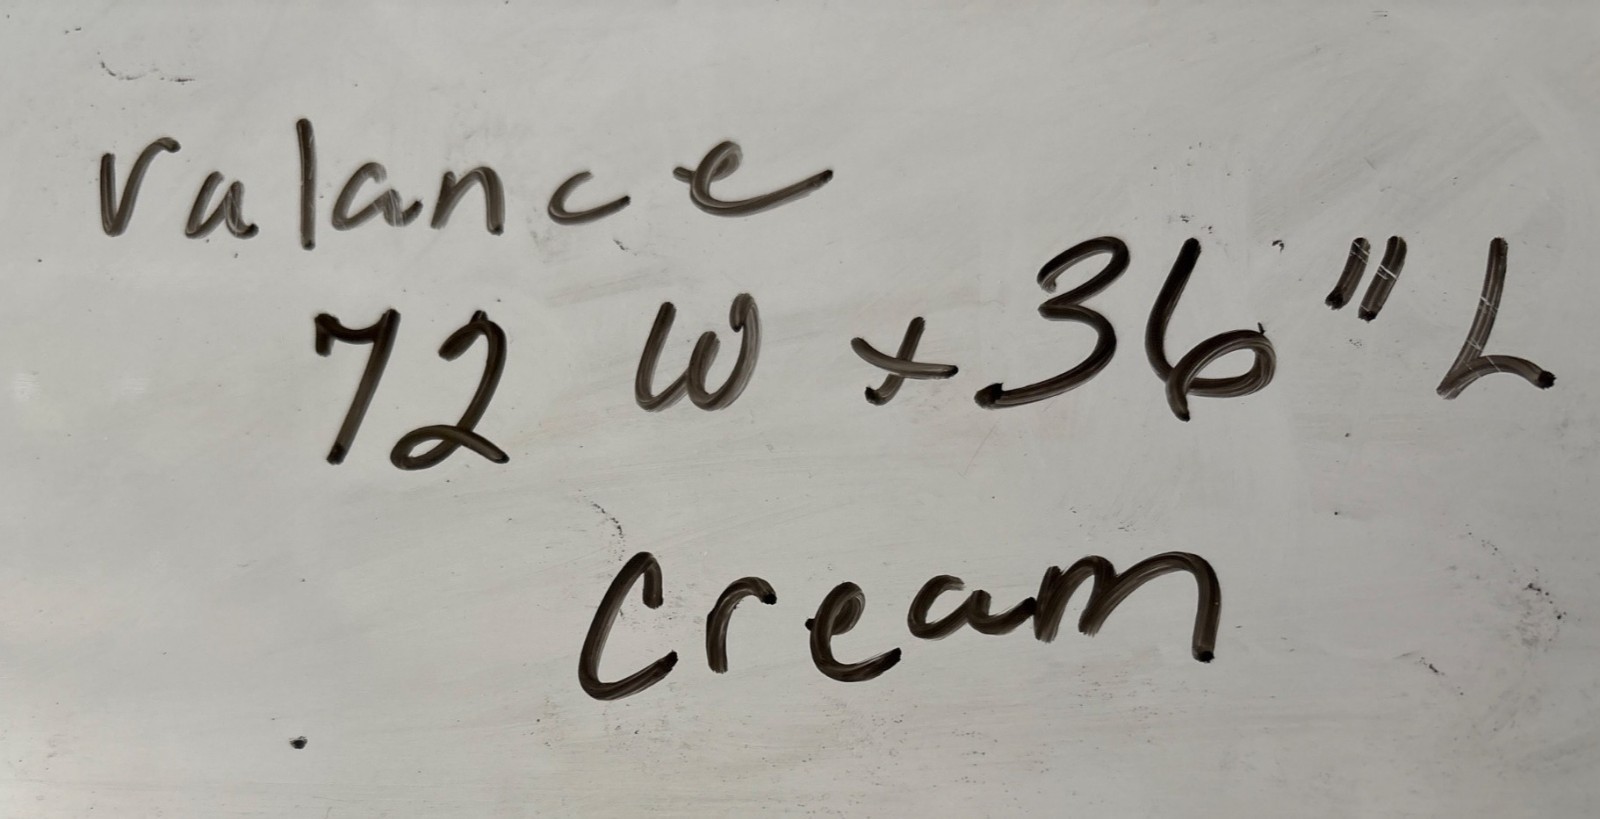 valance
72 W x 36" L
Cream